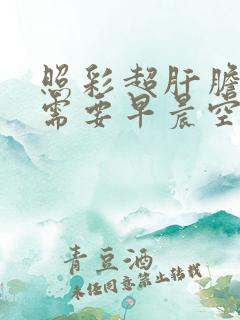 照彩超肝胆
需要早晨空
青豆酒
未经同意禁止转载